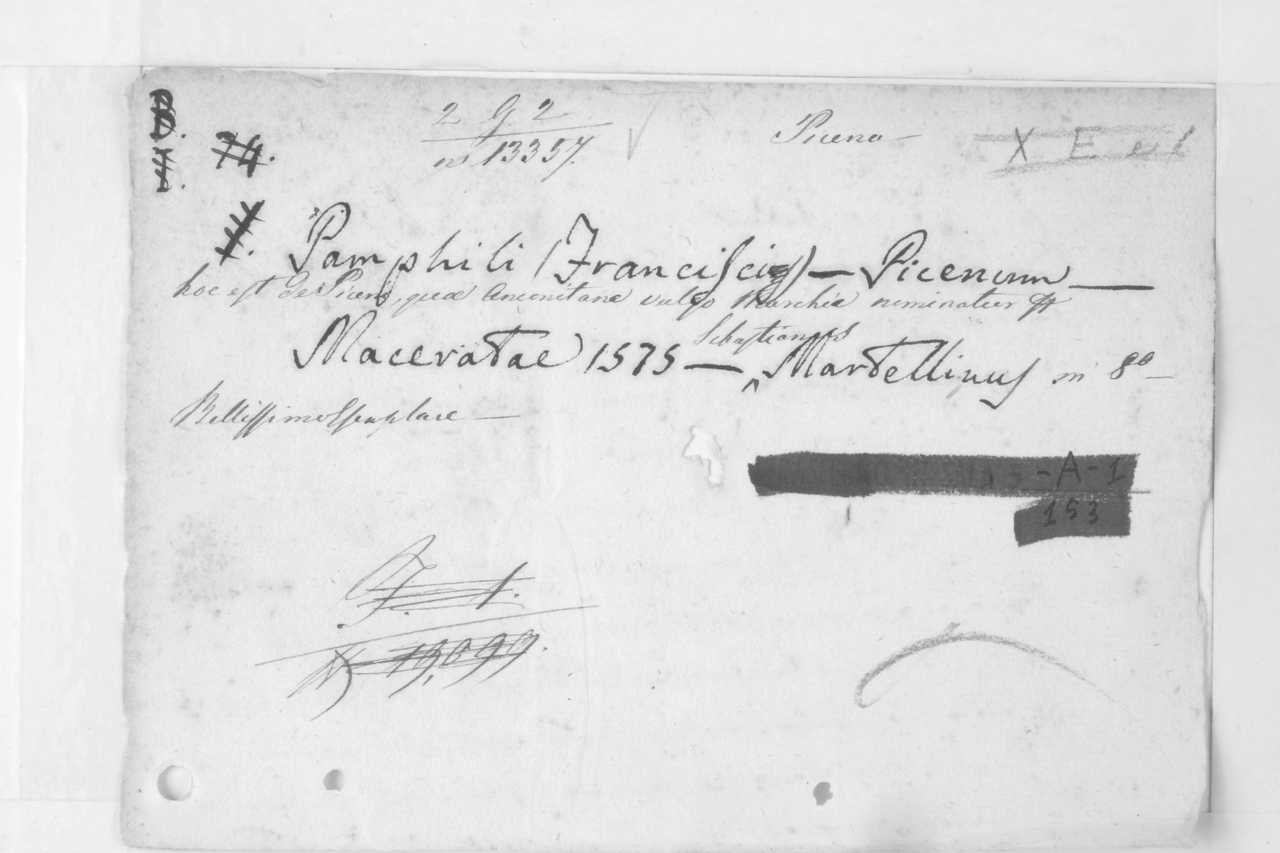 2 g 2
n° 13357.
Piceno
X E
74.
Pamphili (Francisci) — Picenum —
hoc est de Piceno, quae Anconitana vulgo Marchia nominatur &
Sebastianus
Maceratae 1575 — Martellinus in 8°
Bellissimo Esemplare —
-A-I
153
F. 1.
N 19,099.